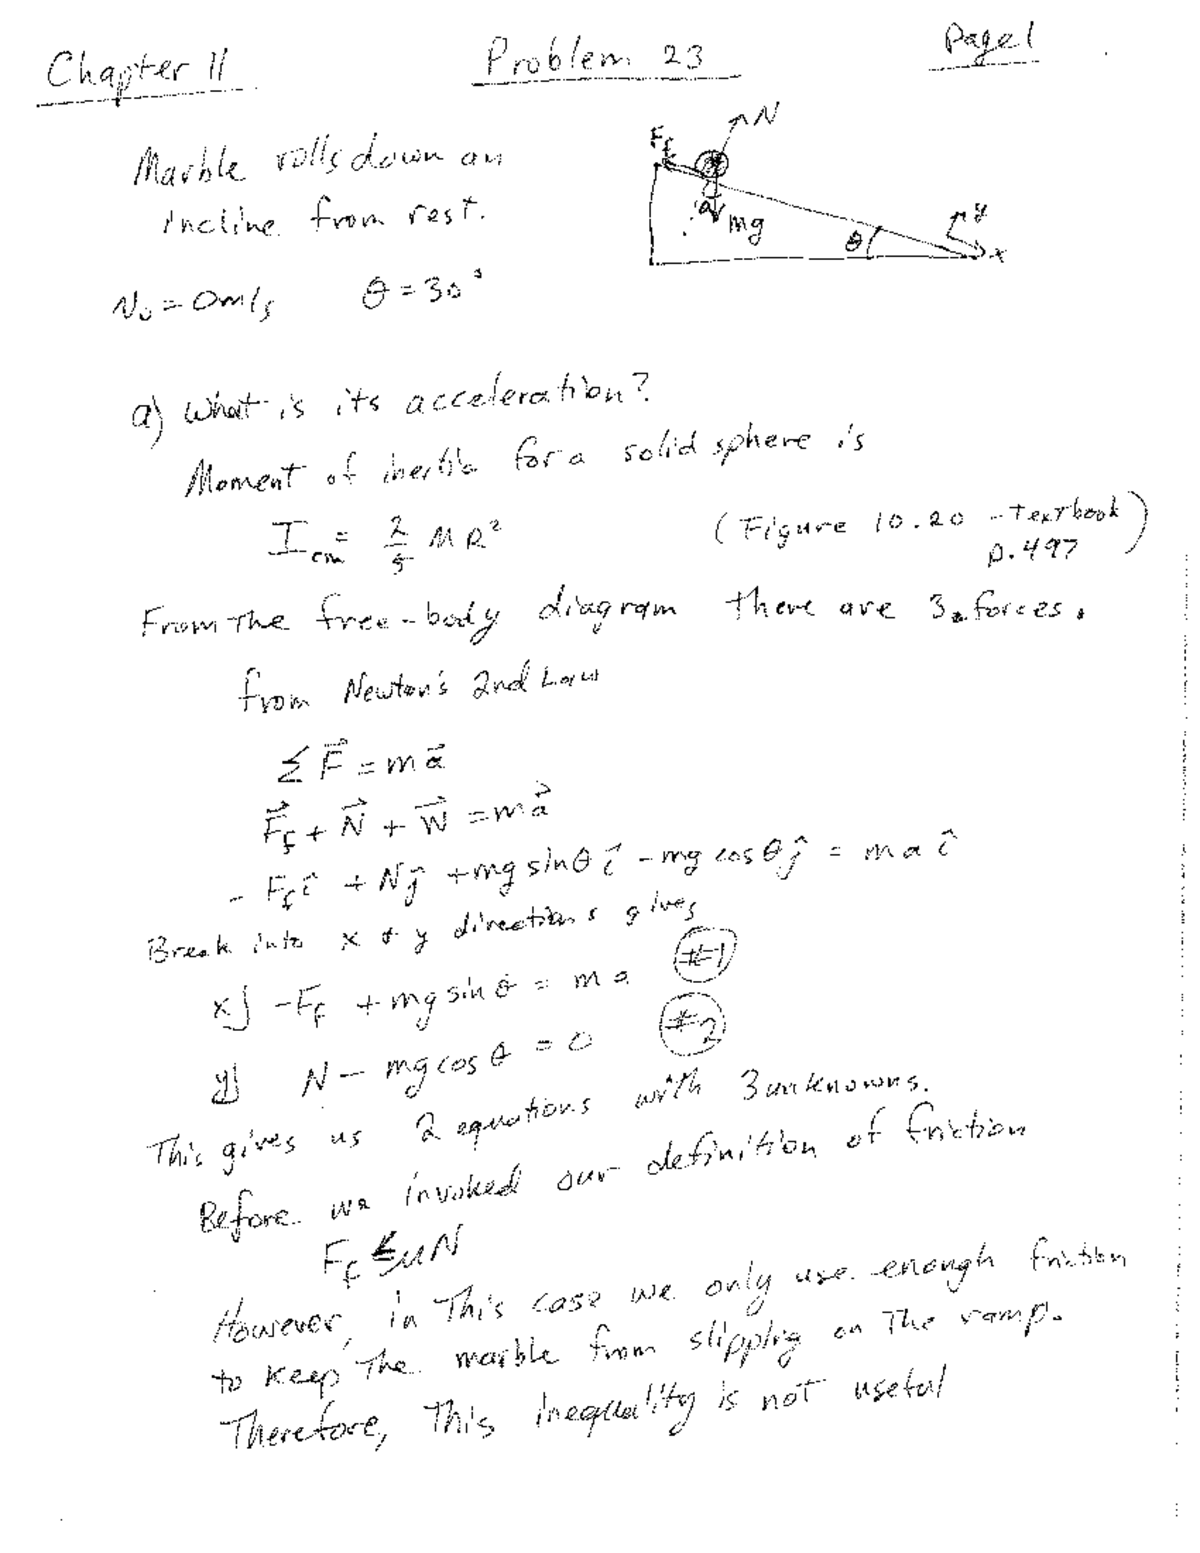 Chapter 11 Problem 23 Page 1
Marble rolls down an
incline from rest.
v₀ = 0 m/s θ = 30°
F_f N mg θ y x
a) What is its acceleration?
Moment of inertia for a solid sphere is
I_cm = 2/5 MR² (Figure 10.20 - Textbook p. 497)
From the free-body diagram there are 3 forces.
from Newton's 2nd Law
Σ F⃗ = m a⃗
F⃗_f + N⃗ + W⃗ = m a⃗
- F_f î + N ĵ + mg sin θ î - mg cos θ ĵ = m a î
Break into x & y directions gives
x) -F_f + mg sin θ = m a #1
y) N - mg cos θ = 0 #2
This gives us 2 equations with 3 unknowns.
Before we invoked our definition of friction
F_f ≤ μN
However, in This case we only use enough friction
to keep The marble from slipping on The ramp.
Therefore, This inequality is not useful